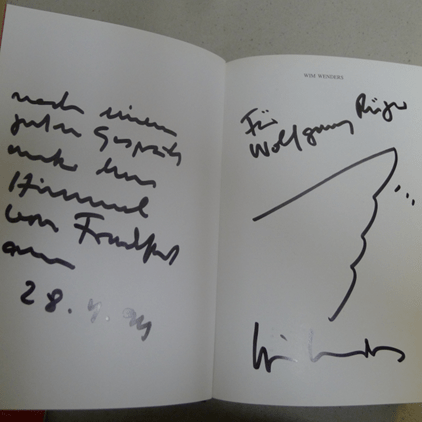 nach einem
guten Gespräch
unter dem
Himmel
von Frankfurt
am
28.4.94
WIM WENDERS
Für
Wolfgang Rüger
...
Wim Wenders